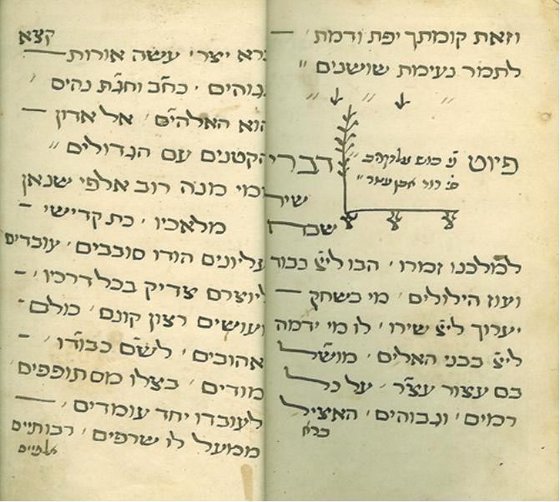 וזאת קומתך יפת ודמת ׳
לתמור נעימת שושנים ״
פיוט
דברי
שיר
שבח
למלכנו זמרו ׳ הבו לי״י כבוד
ועוז הילולים ׳ מי בשחק
יערוך לי״י שירו ׳ לו מי ידמה
לי״י בבני האלים ׳ מושל
בם עצור עצר ׳ על כל
רמים ׳ וגבוהים ׳ האציל
ברא
קצא
ברא יצרי עשה אורות
גבוהים ׳
הוא האלהים ׳ אל אדון
הקטנים עם הגדולים ״
ומי מנה רוב אלפי שנאן
מלאכיו ׳ כת קדישי
עליונים הודו סובבים ׳ עובדים
ליוצרם צדיק בכל דרכיו ׳
ועושים רצון קונם ׳ כולם
אהובים ׳ לשם כבודו ׳
מודים ׳ בצלו מסתופפים ׳
לעובדו יחד עומדים ׳
ממעל לו שרפים ׳ רבותיים
אלפיים